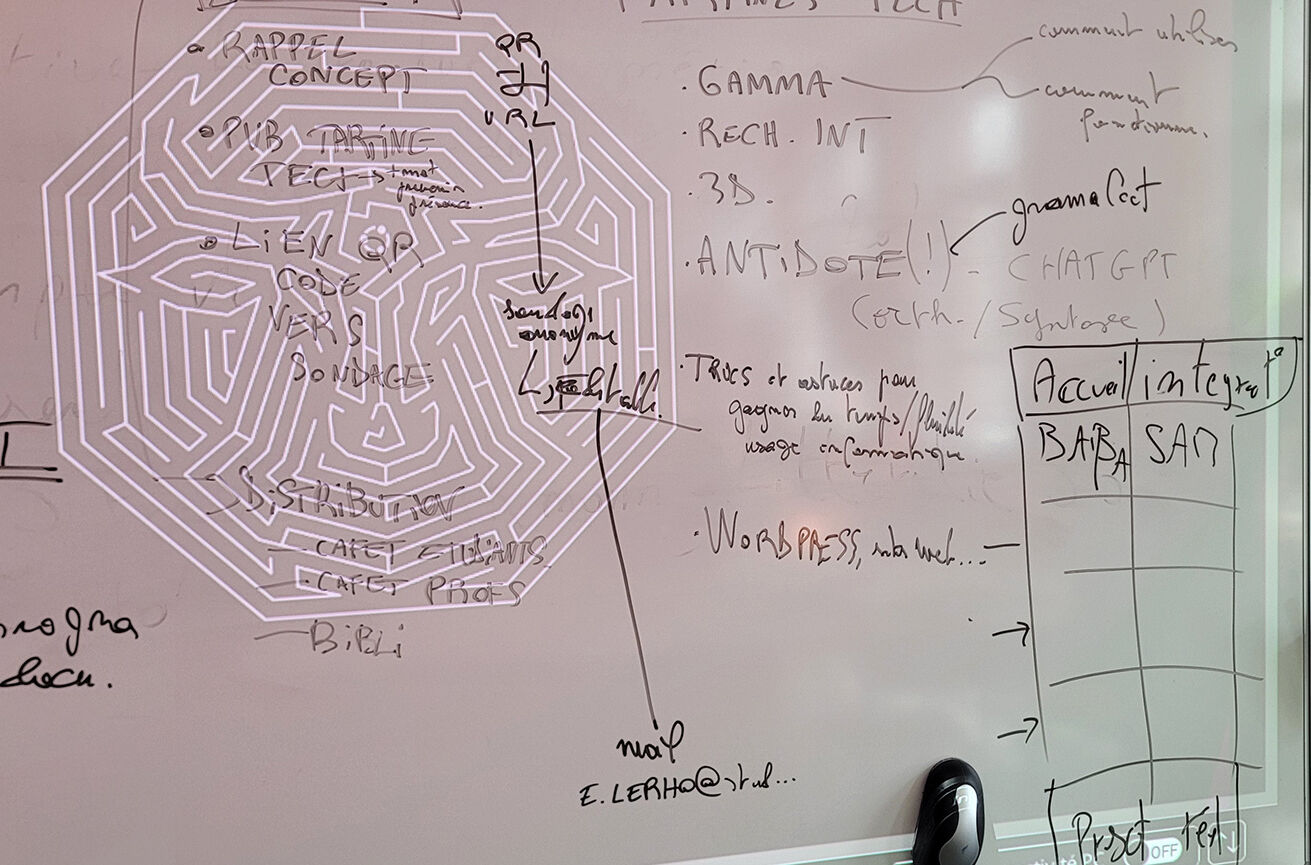 • RAPPEL
CONCEPT
QR
URL
• PUB TARTINE
TECH → + mot
• LIEN QR
CODE
VERS
SONDAGE
sondage
anonyme
DISTRIBUTION
– CAFET ETUDIANTS
– • CAFET PROFS
– BIBLI
mail
E. LERHO@stud...
TARTINES TECH
• GAMMA
comment utiliser
comment
fonctionne.
• RECH. INT
• 3D.
gramalect
• ANTIDOTE (!) – CHATGPT
(orth. / Syntaxe)
• TRUCS et astuces pour
gagner du temps / fluidité
usage informatique
• WORDPRESS, sites web... –
Accueil intégrat°
BAÏBA SAM
→
→
Prsct tech
OFF